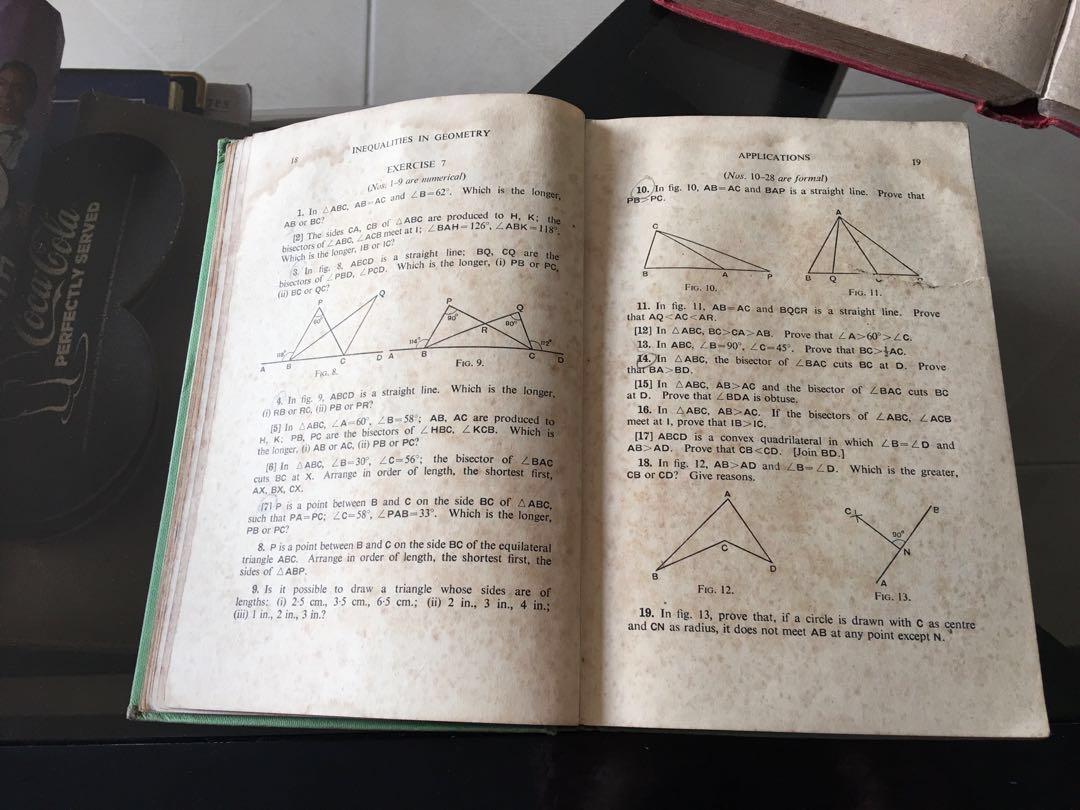 Coca-Cola
PERFECTLY SERVED
18
INEQUALITIES IN GEOMETRY
EXERCISE 7
(Nos. 1–9 are numerical)
1. In △ABC, AB=AC and ∠B=62°. Which is the longer,
AB or BC?
[2] The sides CA, CB of △ABC are produced to H, K; the
bisectors of ∠ABC, ∠ACB meet at I; ∠BAH=126°, ∠ABK=118°.
Which is the longer, IB or IC?
3. In fig. 8, ABCD is a straight line; BQ, CQ are the
bisectors of ∠PBD, ∠PCD. Which is the longer, (i) PB or PC,
(ii) BC or QC?
P
Q
60°
118°
A
B
C
D
FIG. 8.
P
Q
90°
80°
R
114°
112°
A
B
C
D
FIG. 9.
4. In fig. 9, ABCD is a straight line. Which is the longer,
(i) RB or RC, (ii) PB or PR?
[5] In △ABC, ∠A=60°, ∠B=58°; AB, AC are produced to
H, K; PB, PC are the bisectors of ∠HBC, ∠KCB. Which is
the longer, (i) AB or AC, (ii) PB or PC?
[6] In △ABC, ∠B=30°, ∠C=56°; the bisector of ∠BAC
cuts BC at X. Arrange in order of length, the shortest first,
AX, BX, CX.
[7] P is a point between B and C on the side BC of △ABC,
such that PA=PC; ∠C=58°, ∠PAB=33°. Which is the longer,
PB or PC?
8. P is a point between B and C on the side BC of the equilateral
triangle ABC. Arrange in order of length, the shortest first, the
sides of △ABP.
9. Is it possible to draw a triangle whose sides are of
lengths: (i) 2·5 cm., 3·5 cm., 6·5 cm.; (ii) 2 in., 3 in., 4 in.;
(iii) 1 in., 2 in., 3 in.?
APPLICATIONS
19
(Nos. 10–28 are formal)
10. In fig. 10, AB=AC and BAP is a straight line. Prove that
PB>PC.
C
B
A
P
FIG. 10.
A
B
Q
FIG. 11.
11. In fig. 11, AB=AC and BQCR is a straight line. Prove
that AQ<AC<AR.
[12] In △ABC, BC>CA>AB. Prove that ∠A>60°>∠C.
13. In ABC, ∠B=90°, ∠C=45°. Prove that BC>½AC.
14. In △ABC, the bisector of ∠BAC cuts BC at D. Prove
that BA>BD.
[15] In △ABC, AB>AC and the bisector of ∠BAC cuts BC
at D. Prove that ∠BDA is obtuse.
16. In △ABC, AB>AC. If the bisectors of ∠ABC, ∠ACB
meet at I, prove that IB>IC.
[17] ABCD is a convex quadrilateral in which ∠B=∠D and
AB>AD. Prove that CB<CD. [Join BD.]
18. In fig. 12, AB>AD and ∠B=∠D. Which is the greater,
CB or CD? Give reasons.
A
C
B
D
FIG. 12.
C
B
90°
N
A
FIG. 13.
19. In fig. 13, prove that, if a circle is drawn with C as centre
and CN as radius, it does not meet AB at any point except N.